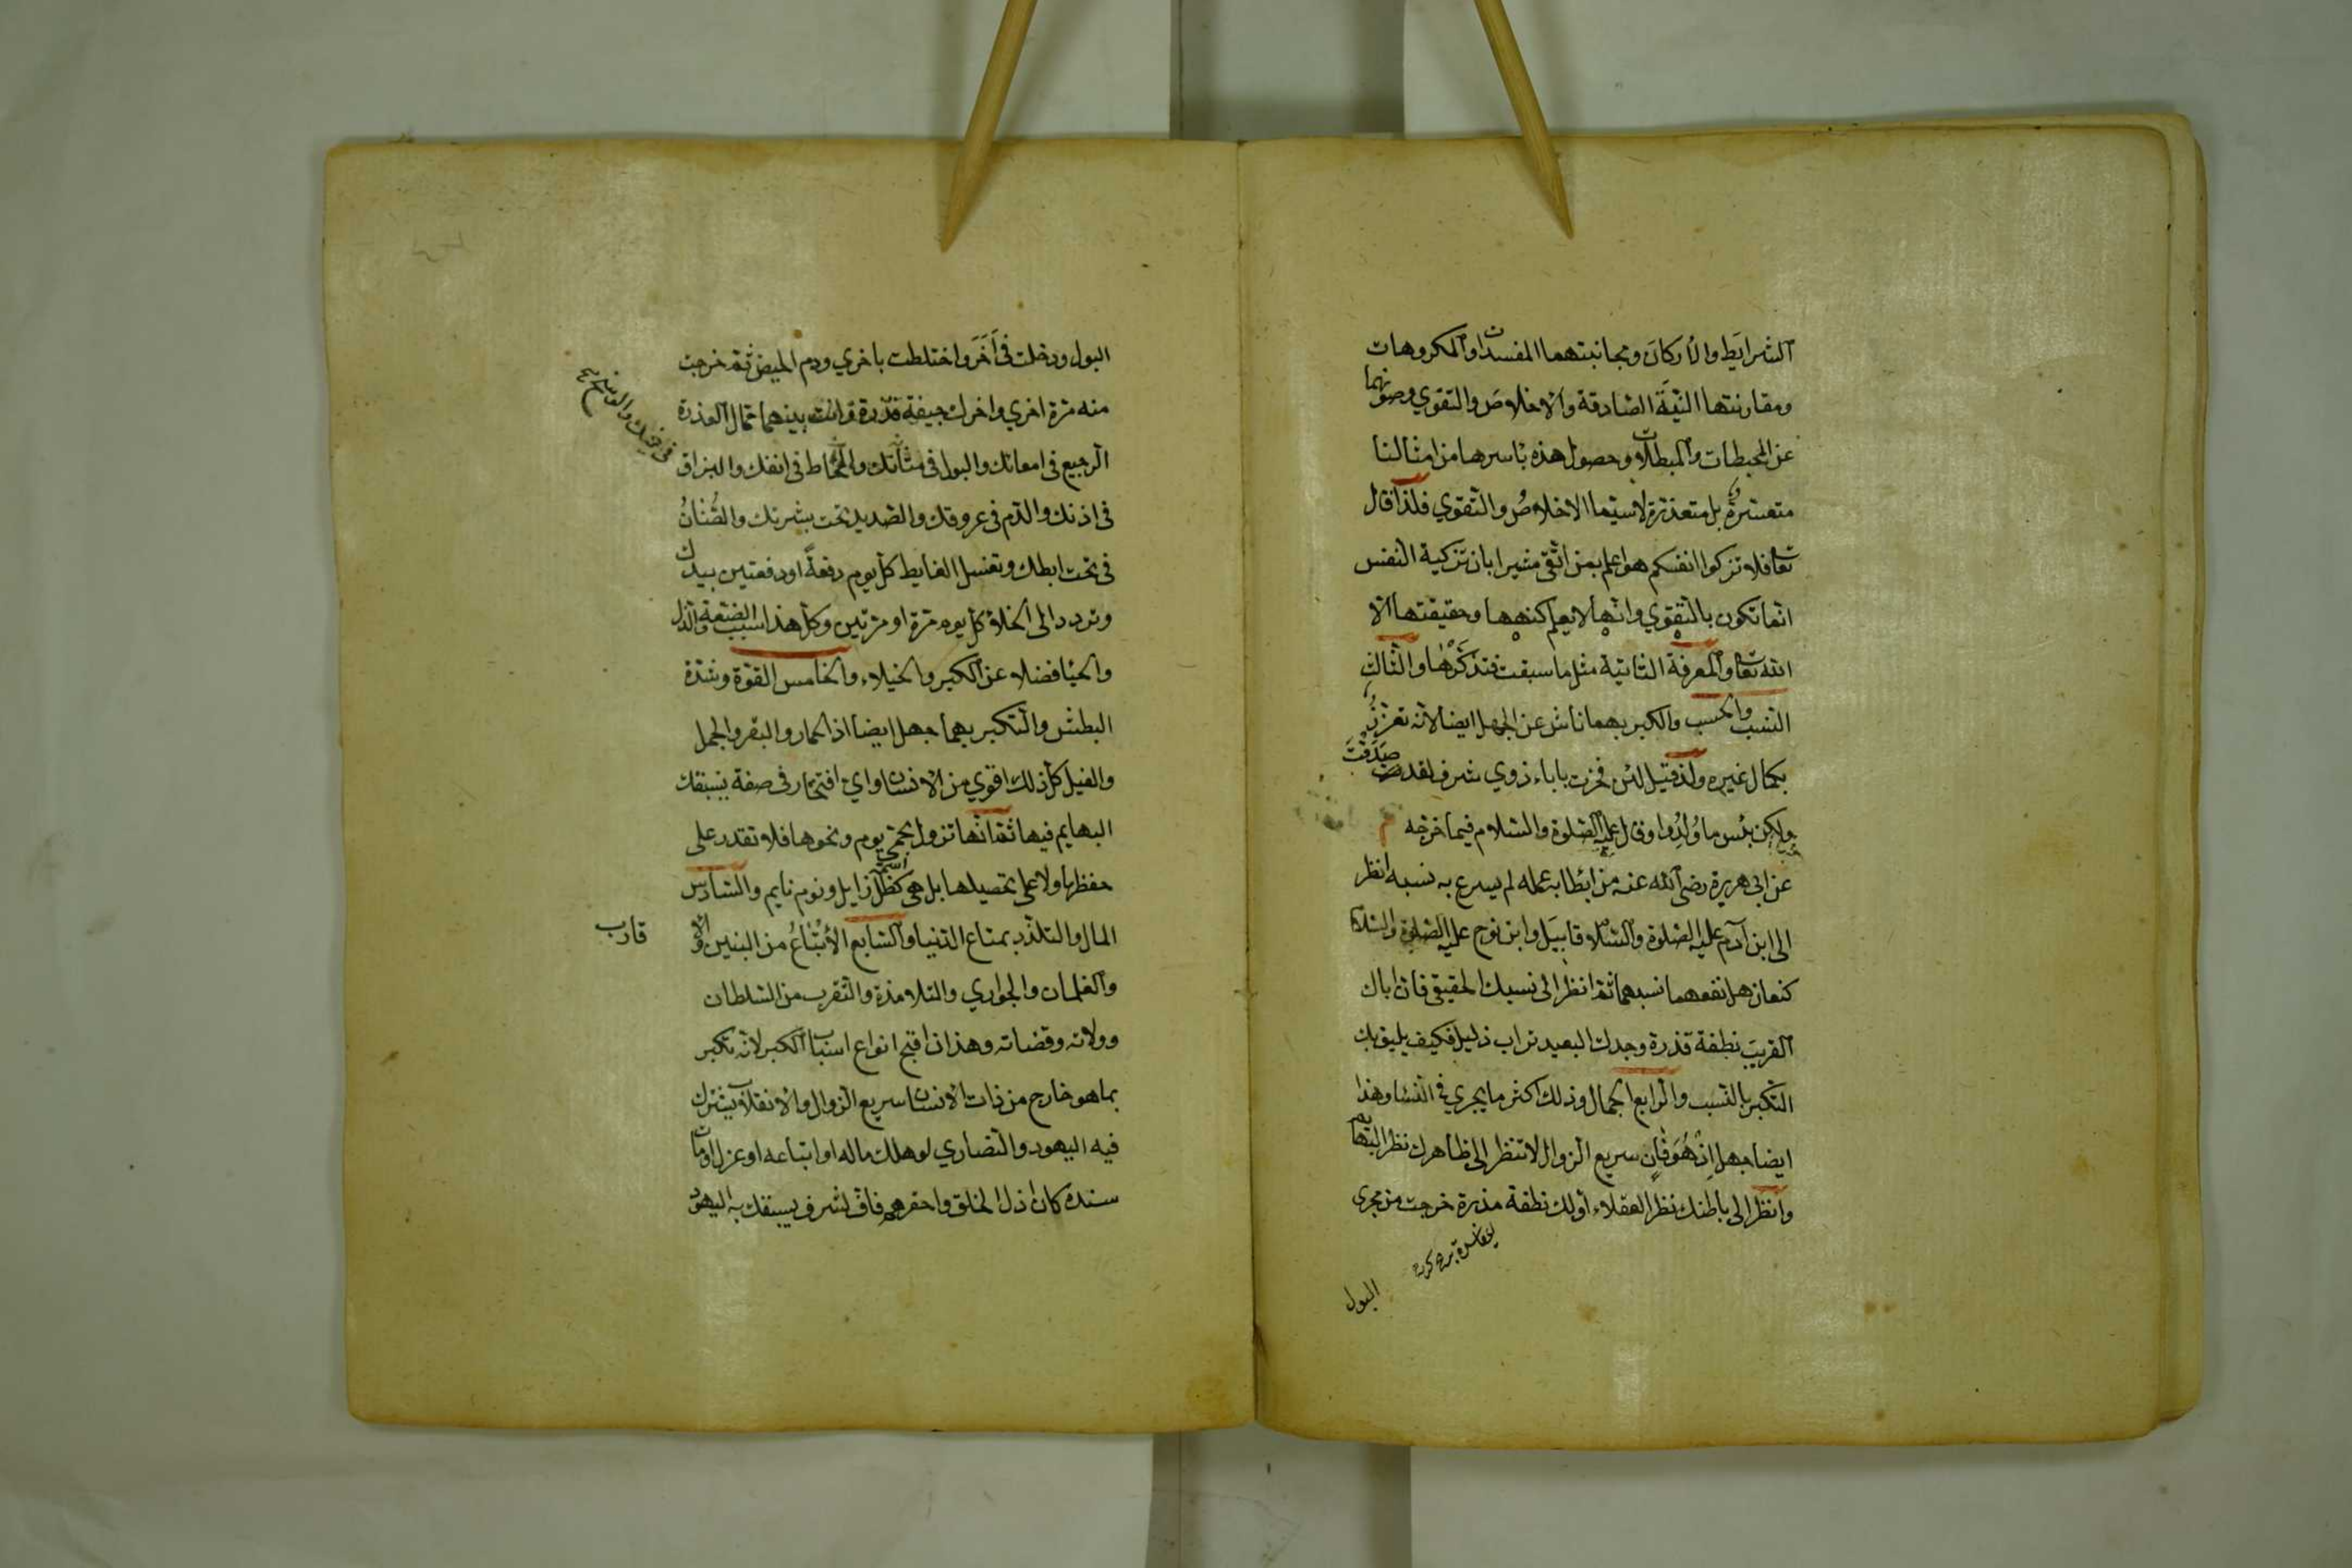 الشرايط والاركان ومجانبتهما المفسدات والمكروهات
ومقارنتها النيَّة الصادقة والاخلاص والتقوي وصونهما
عن المحبطات والمبطلات وحصول هذه باسرها من امثالنا
متعسّرة بل متعذرة لاسيّما الاخلاصُ والتقوي فلذا قال
تعا فلا تزكوا انفسكم هو اعلم بمن اتقى مشيرا بان تزكية النفس
انّما تكون بالتقوي وانها لا يعلم كنهها وحقيقتها الا
الله تعا والمعرفة الثانية مثل ما سبقت فتذكّرها والثالث
النسب والحسب والكبر بهما ناش عن الجهل ايضا لانه تعزّزٌ
بكمال غيره ولذا قيل لئن فخرت باباء ذوي شرف لقد صَدَقْتَ
ولكن بئس ما وُلِدُوا وقال عليه الصلوة والسلام فيما خرجه
عن ابي هريرة رضي الله عنه من ابطا به عمله لم يسرع به نسبه انظر
الى ابن آدم عليه الصلوة والسلا قابيل وابن نوح عليه الصلوة والسلا
كنعان هل نفعهما نسبهما ثم انظر الى نسبك الحقيقي فان اباك
القريبَ نطفة قذرة وجدك البعيد تراب ذليل فكيف يليق بك
التكبر بالنسب والرابع الجمال وذلك اكثر ما يجري في النسا وهذا
ايضا جهل اِذْ هُوَ فَانٍ سريع الزوال لا تنظر الى ظاهرك نظر البهايم
وانظر الى باطنك نظر العقلاء اولك نطفة مذرة خرجت من مجرى
البول
البول ودخلت في اَخَرَ واختلطت باخري ودم الحيض ثم خرجت
منه مرة اخري واخرك جيفة قذرة وانت بينهما حمال العذرة
الرجيع في امعائك والبول في مثانتك والمخاط في انفك والبزاق
في اذنك والدم في عروقك والصديد تحت بشرتك والصُّنانُ
في تحت ابطك وتغسل الغايط كل يوم دفعةً او دفعتين بيدك
وتردد الى الخلاء كل يوم مرة او مرتين وكل هذا سبب الضعة والذل
والحيا فضلا عن الكبر والخيلاء والخامس القوّة وشدّة
البطش والتكبر بهما جهل ايضا اذ الحمار والبقر والجمل
والفيل كل ذلك اقوي من الانسان واي افتخار في صفة يسبقك
البهايم فيها ثم انها تزول بحمّى يوم ونحوها فلا تقدر على
حفظها ولا على تحصيلها بل هي كظل زايل ونوم نايم والسادس
المال والتلذذ بمتاع الدنيا والسابع الاَتْبَاعُ من البنين والا
قارب
والغلمان والجواري والتلامذة والتقرب من السلطان
وولاته وقضاته وهذان اقبح انواع اسباب الكبر لانه تكبر
بما هو خارج من ذات الانسان سريع الزوال والانقلاب يشترك
فيه اليهود والنصاري لو هلك ماله او اتباعه او عزل او مات
سندك كان اذل الخلق واحقرهم فاف لشرف يسبقك به اليهود